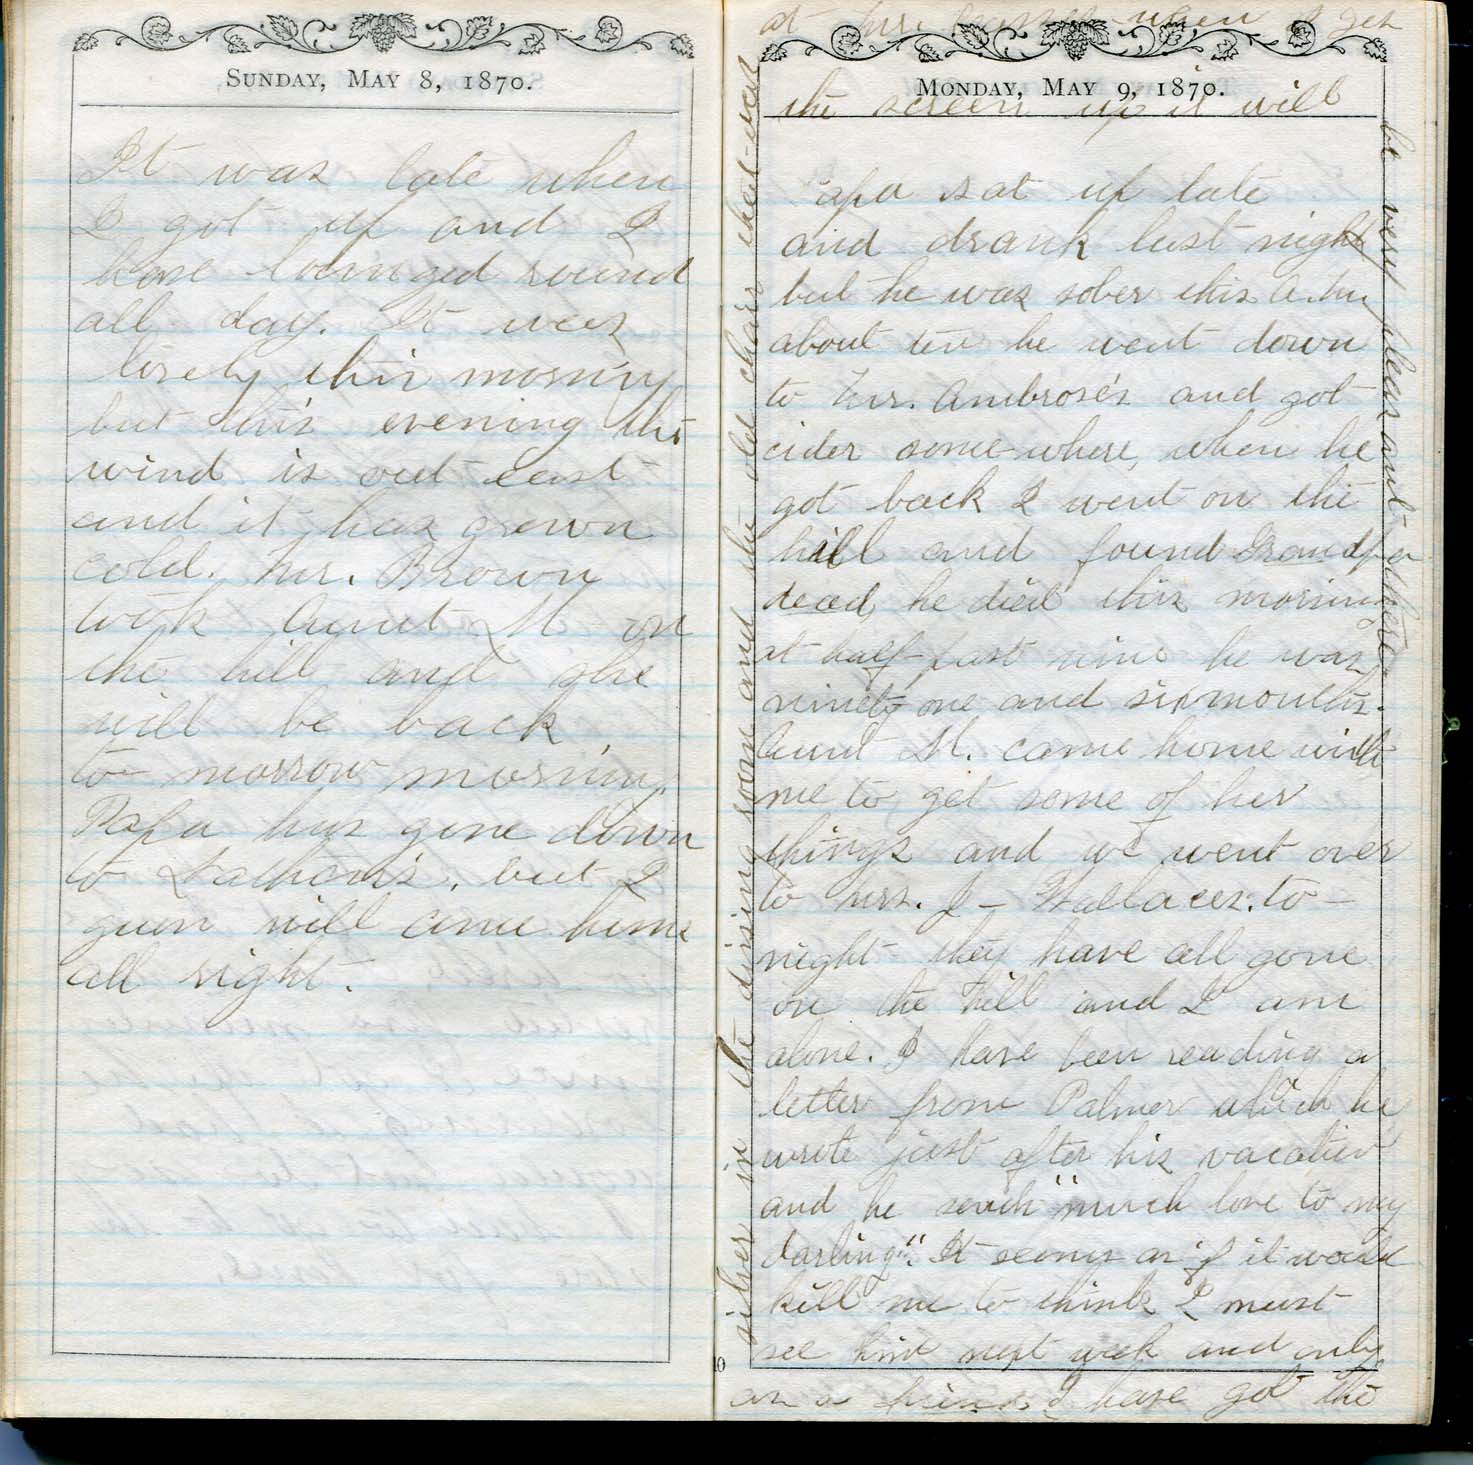 SUNDAY, MAY 8, 1870.
It was late when
I got up and I
have lounged round
all day. It was
lovely this morning
but this evening the
wind is out east
and it has grown
cold. Mr. Brown
took Aunt M on
the hill and she
will be back
to-morrow morning.
Papa has gone down
to but I
guess will come home
all right.
MONDAY, MAY 9, 1870.
Papa sat up late
and drank last night
but he was sober this a.m.
about ten he went down
to Mr. Ambrose's and got
cider some where, when he
got back I went on the
hill and found Grandpa
dead, he died this morning
at half past nine he was
ninety one and six months.
Aunt M. came home with
me to get some of her
things and we went over
to Mrs. J - Wallaces. to-
night they have all gone
on the hill and I am
alone. I have been reading a
letter from Palmer which he
wrote just after his vacation
and he sends "much love to my
darling". It seems as if it would
kill me to think I must
see him next week and only
as a friend. I have got the
silver in the dining room and the old chair that was
at Mrs. when I get
the screen up it will
be very pleasant there